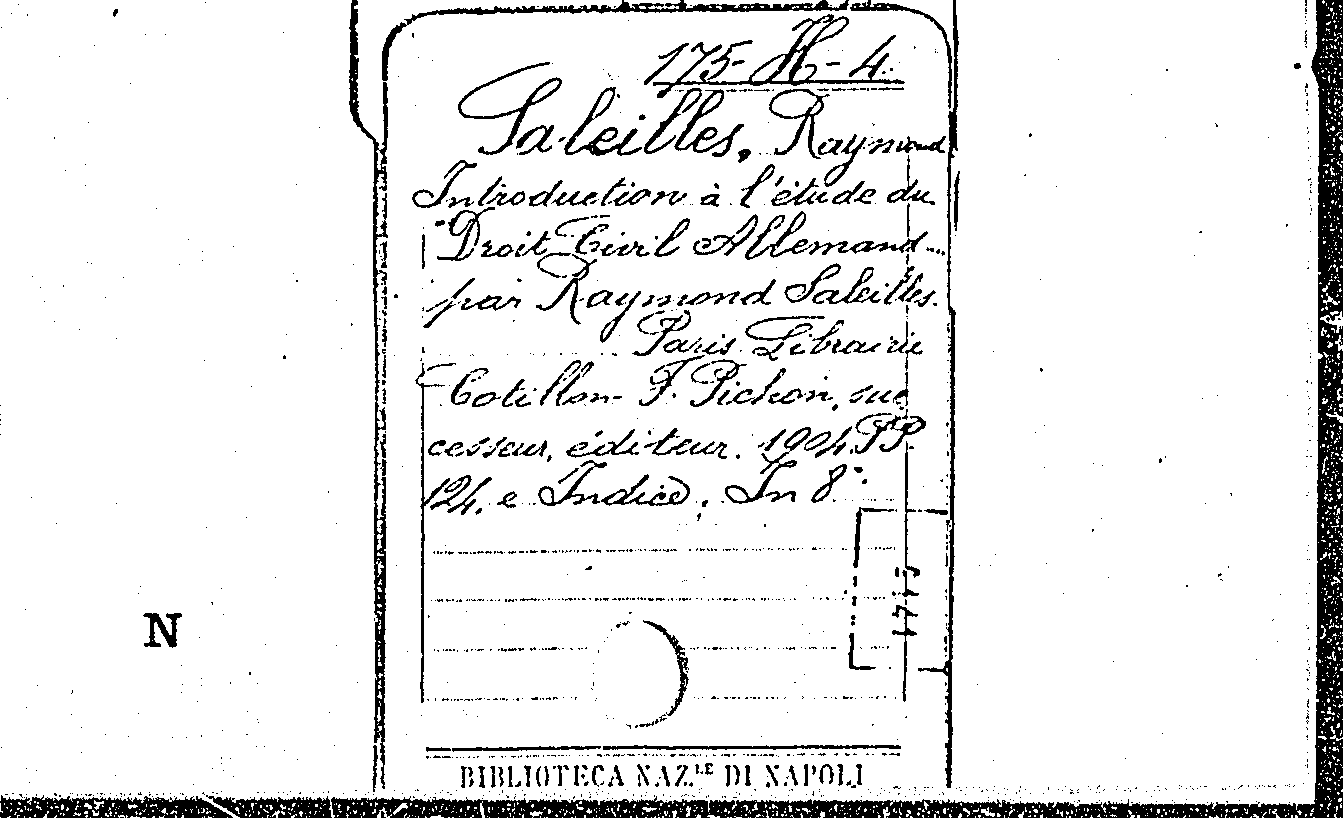 175-H-4.
Saleilles, Raymond
Introduction à l'étude du
Droit Civil Allemand...
par Raymond Saleilles.
Paris Librairie
Cotillon F. Pichon, suc
cesseur, éditeur. 1904. PP.
124, e Indice. In 8°.
N
BIBLIOTECA NAZ.LE DI NAPOLI